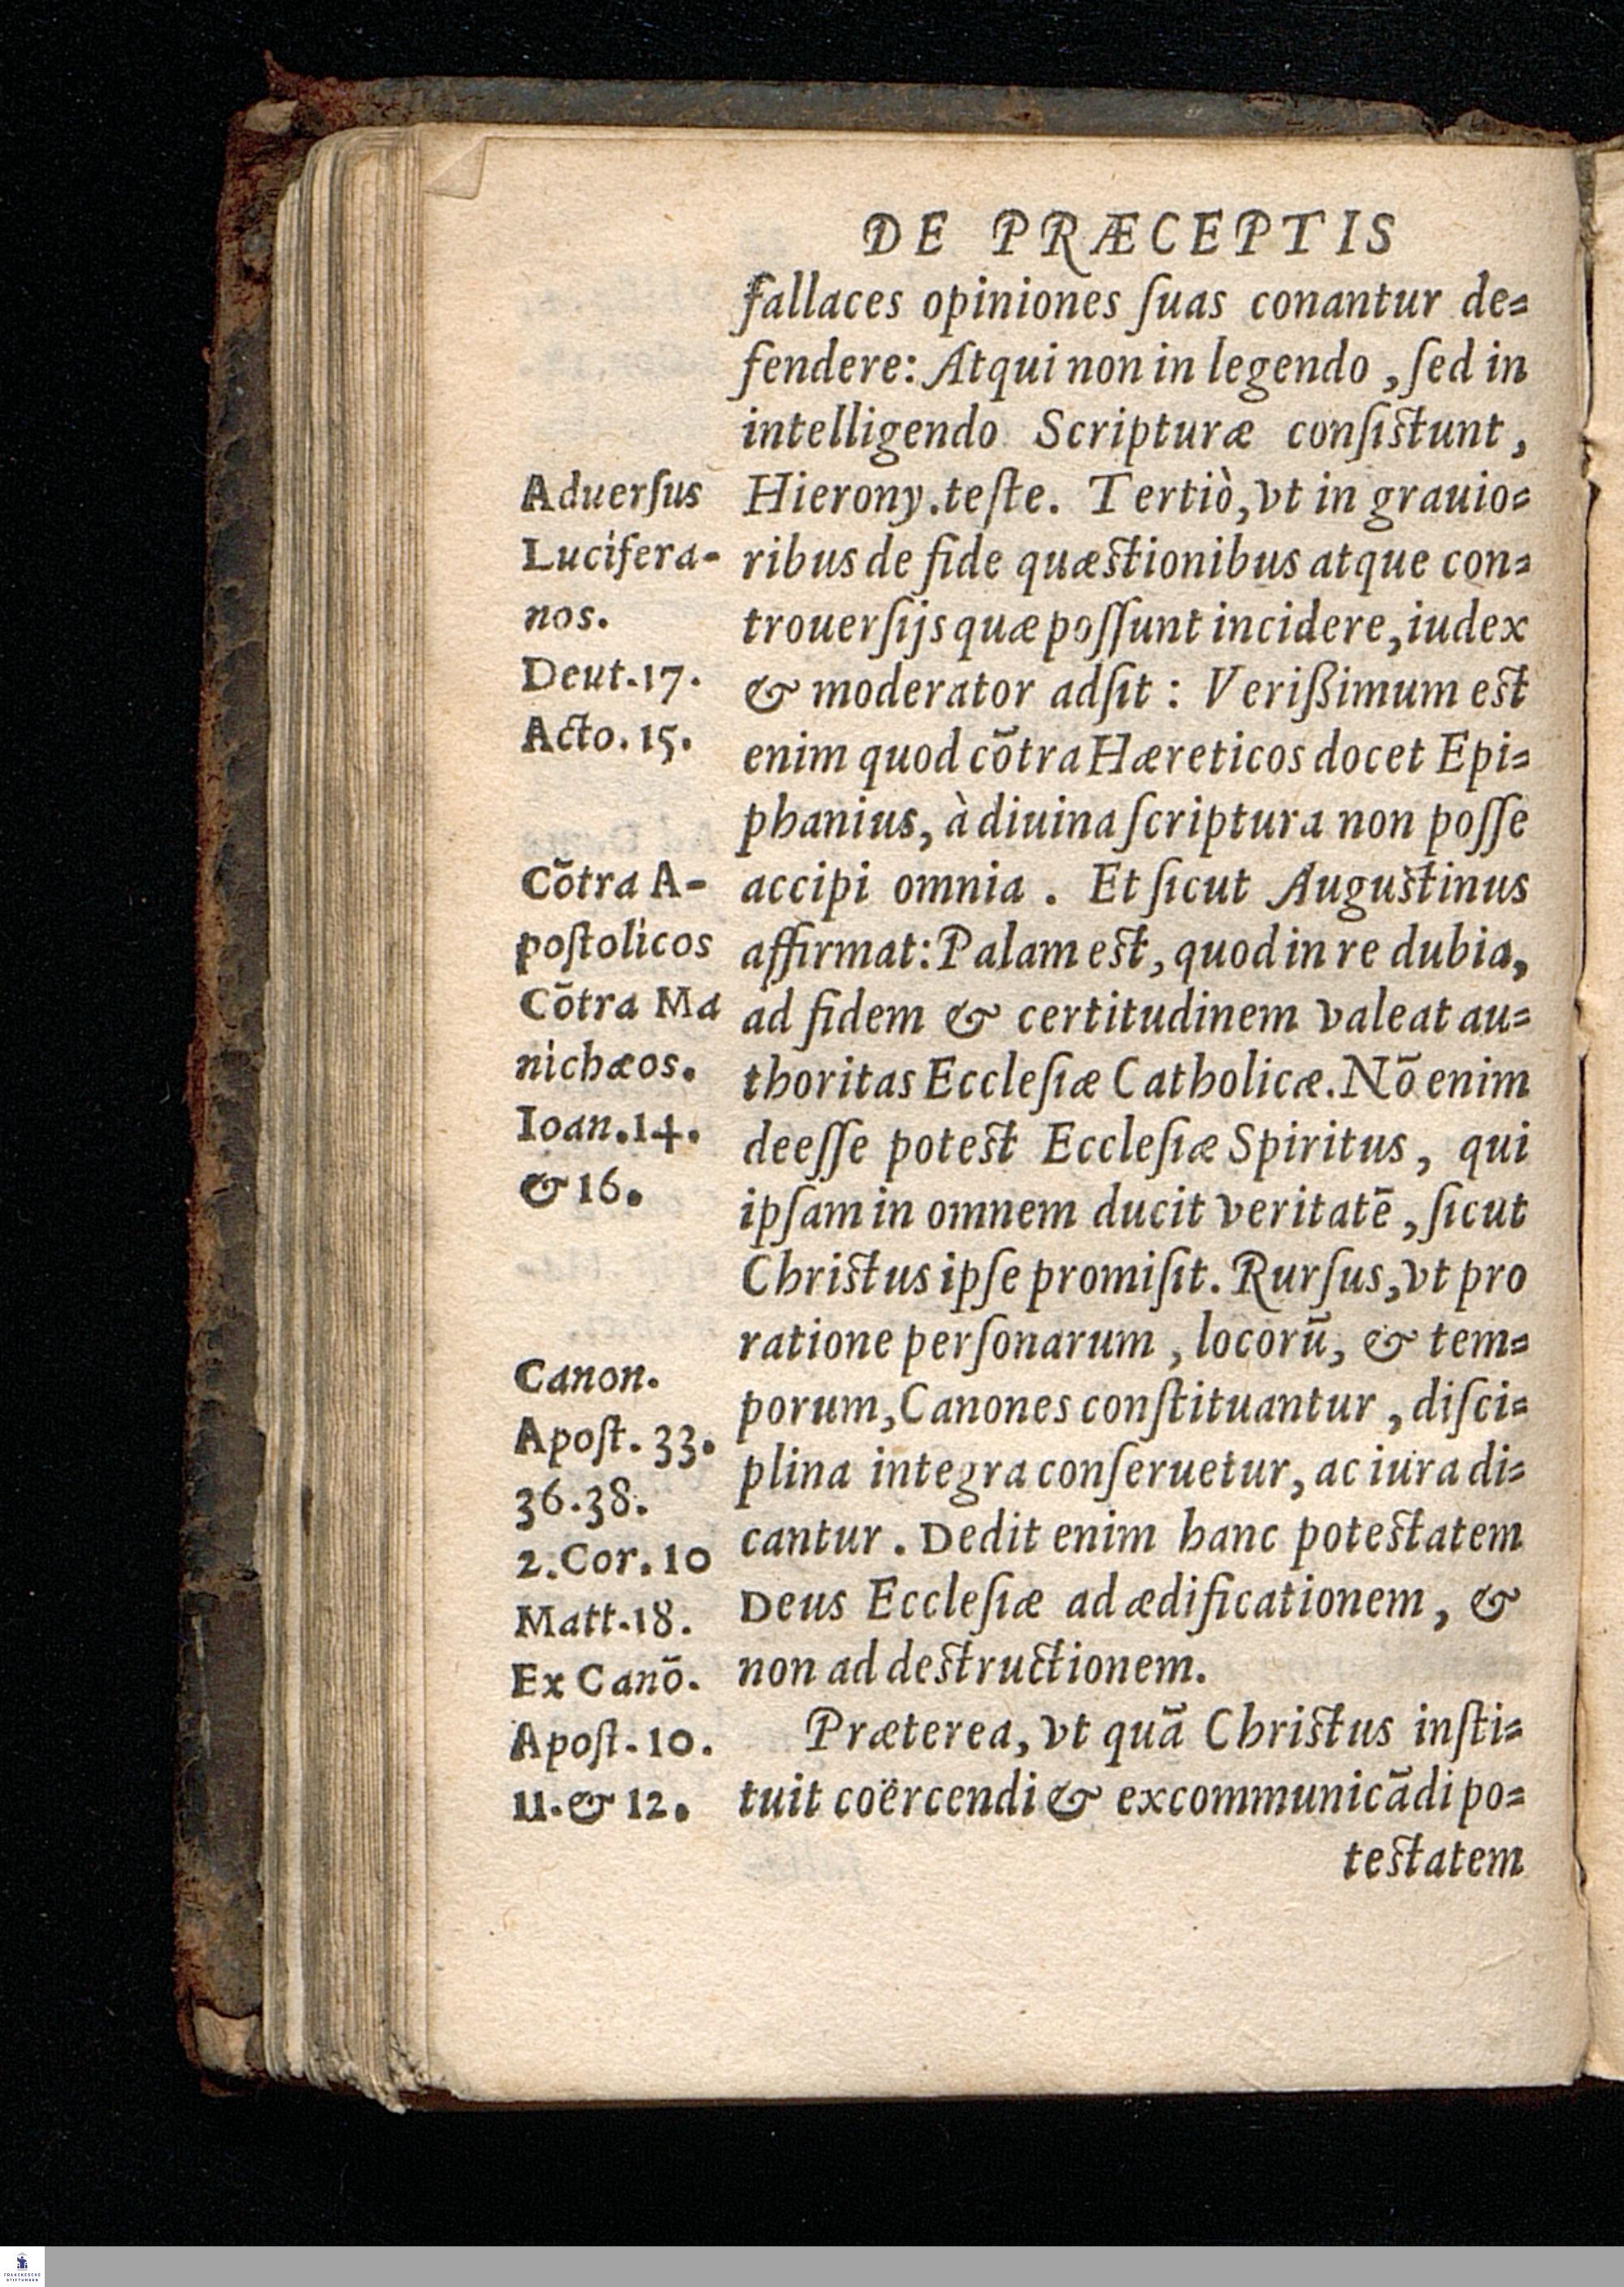 DE PRÆCEPTIS
fallaces opiniones ſuas conantur de=
fendere: Atqui non in legendo, ſed in
intelligendo Scripturæ conſiſtunt,
Hierony. teſte. Tertiò, vt in grauio=
ribus de fide quæſtionibus atque con=
trouerſijs quæ poſſunt incidere, iudex
& moderator adſit: Verißimum eſt
enim quod cõtra Hæreticos docet Epi=
phanius, à diuina ſcriptura non poſſe
accipi omnia. Et ſicut Auguſtinus
affirmat: Palam eſt, quod in re dubia,
ad fidem & certitudinem valeat au=
thoritas Eccleſiæ Catholicæ. Nõ enim
deeſſe poteſt Eccleſiæ Spiritus, qui
ipſam in omnem ducit veritatē, ſicut
Chriſtus ipſe promiſit. Rurſus, vt pro
ratione perſonarum, locorū, & tem=
porum, Canones conſtituantur, diſci=
plina integra conſeruetur, ac iura di=
cantur. Dedit enim hanc poteſtatem
Deus Eccleſiæ ad ædificationem, &
non ad deſtructionem.
Præterea, vt quā Chriſtus inſti=
tuit coërcendi & excommunicādi po=
teſtatem
Aduerſus
Lucifera-
nos.
Deut. 17.
Acto. 15.
Cõtra A-
poſtolicos
Cõtra Ma
nichæos.
Ioan. 14.
& 16.
Canon.
Apoſt. 33.
36. 38.
2. Cor. 10
Matt. 18.
Ex Canõ.
Apoſt. 10.
11. & 12.
FRANCKESCHE
STIFTUNGEN